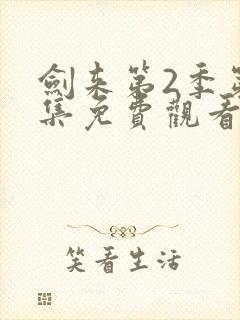 劍来第2季第
集免費觀看
笑看生活